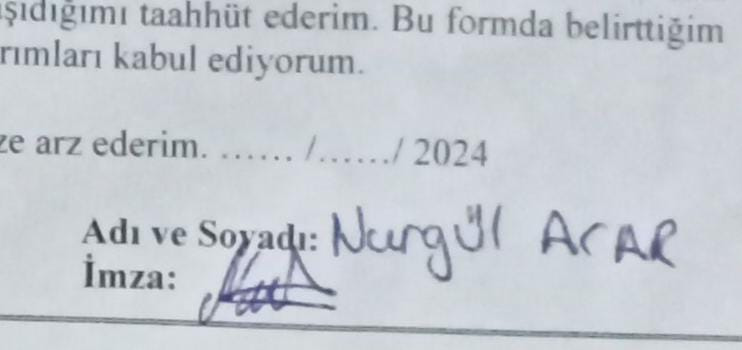 şıdığımı taahhüt ederim. Bu formda belirttiğim
rımları kabul ediyorum.
ze arz ederim. ...... /....../ 2024
Adı ve Soyadı: Nurgül ACAR
İmza: